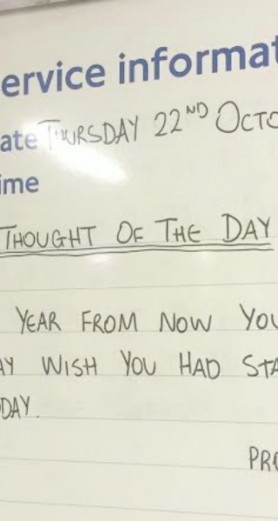 ervice informat
ate THURSDAY 22ND OCTO
ime
THOUGHT OF THE DAY
YEAR FROM NOW YOU
AY WISH YOU HAD STA
DAY.
PRO